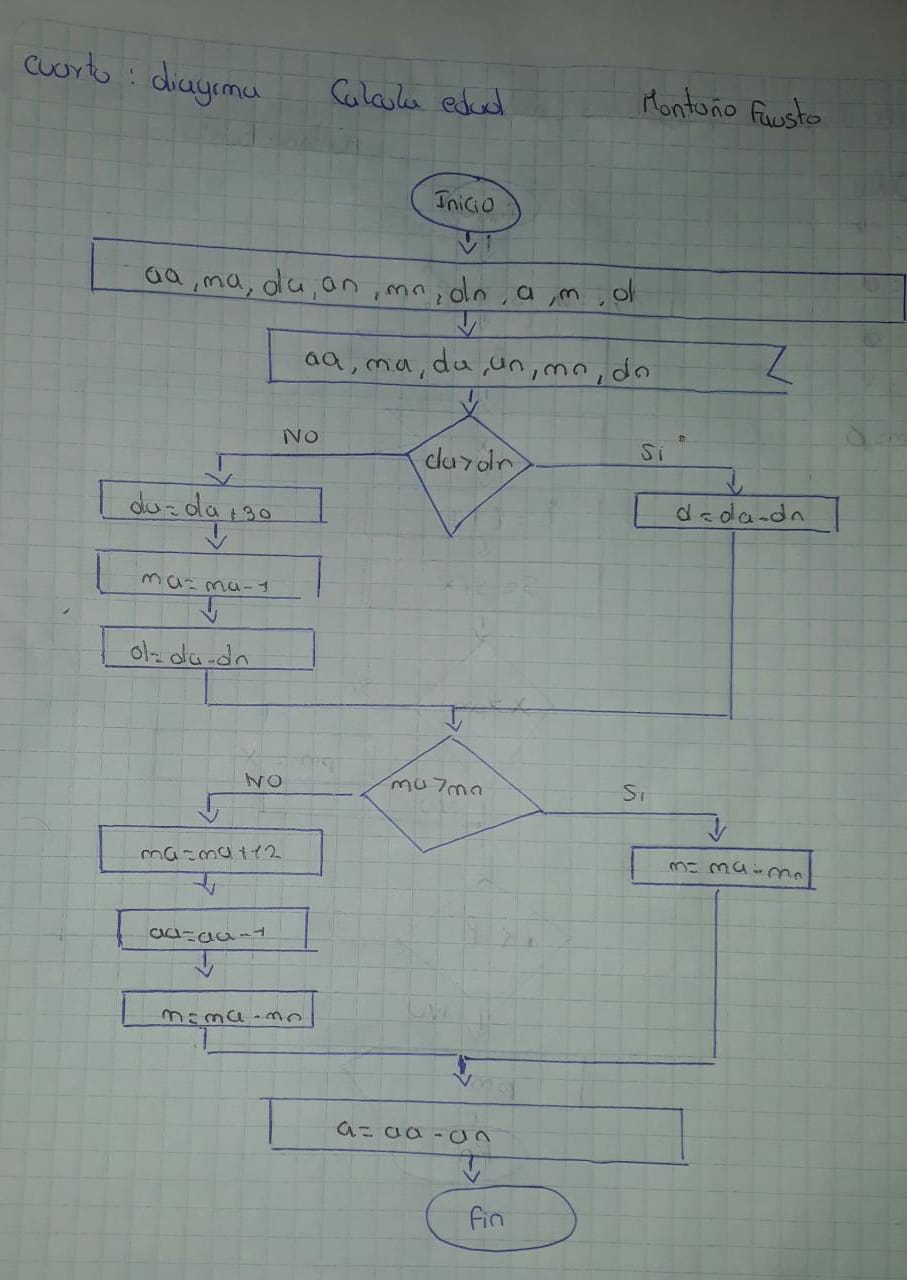 cuarto : diagrma Calcula edad Montaño Fausto
Inicio
aa, ma, da, an, mn, dn, a, m, d
aa, ma, da, an, mn, dn
NO
da>dn
Si
da=da+30
d=da-dn
ma=ma-1
d=da-dn
NO
ma>mn
Si
ma=ma+12
m=ma-mn
aa=aa-1
m=ma-mn
a=aa-an
fin